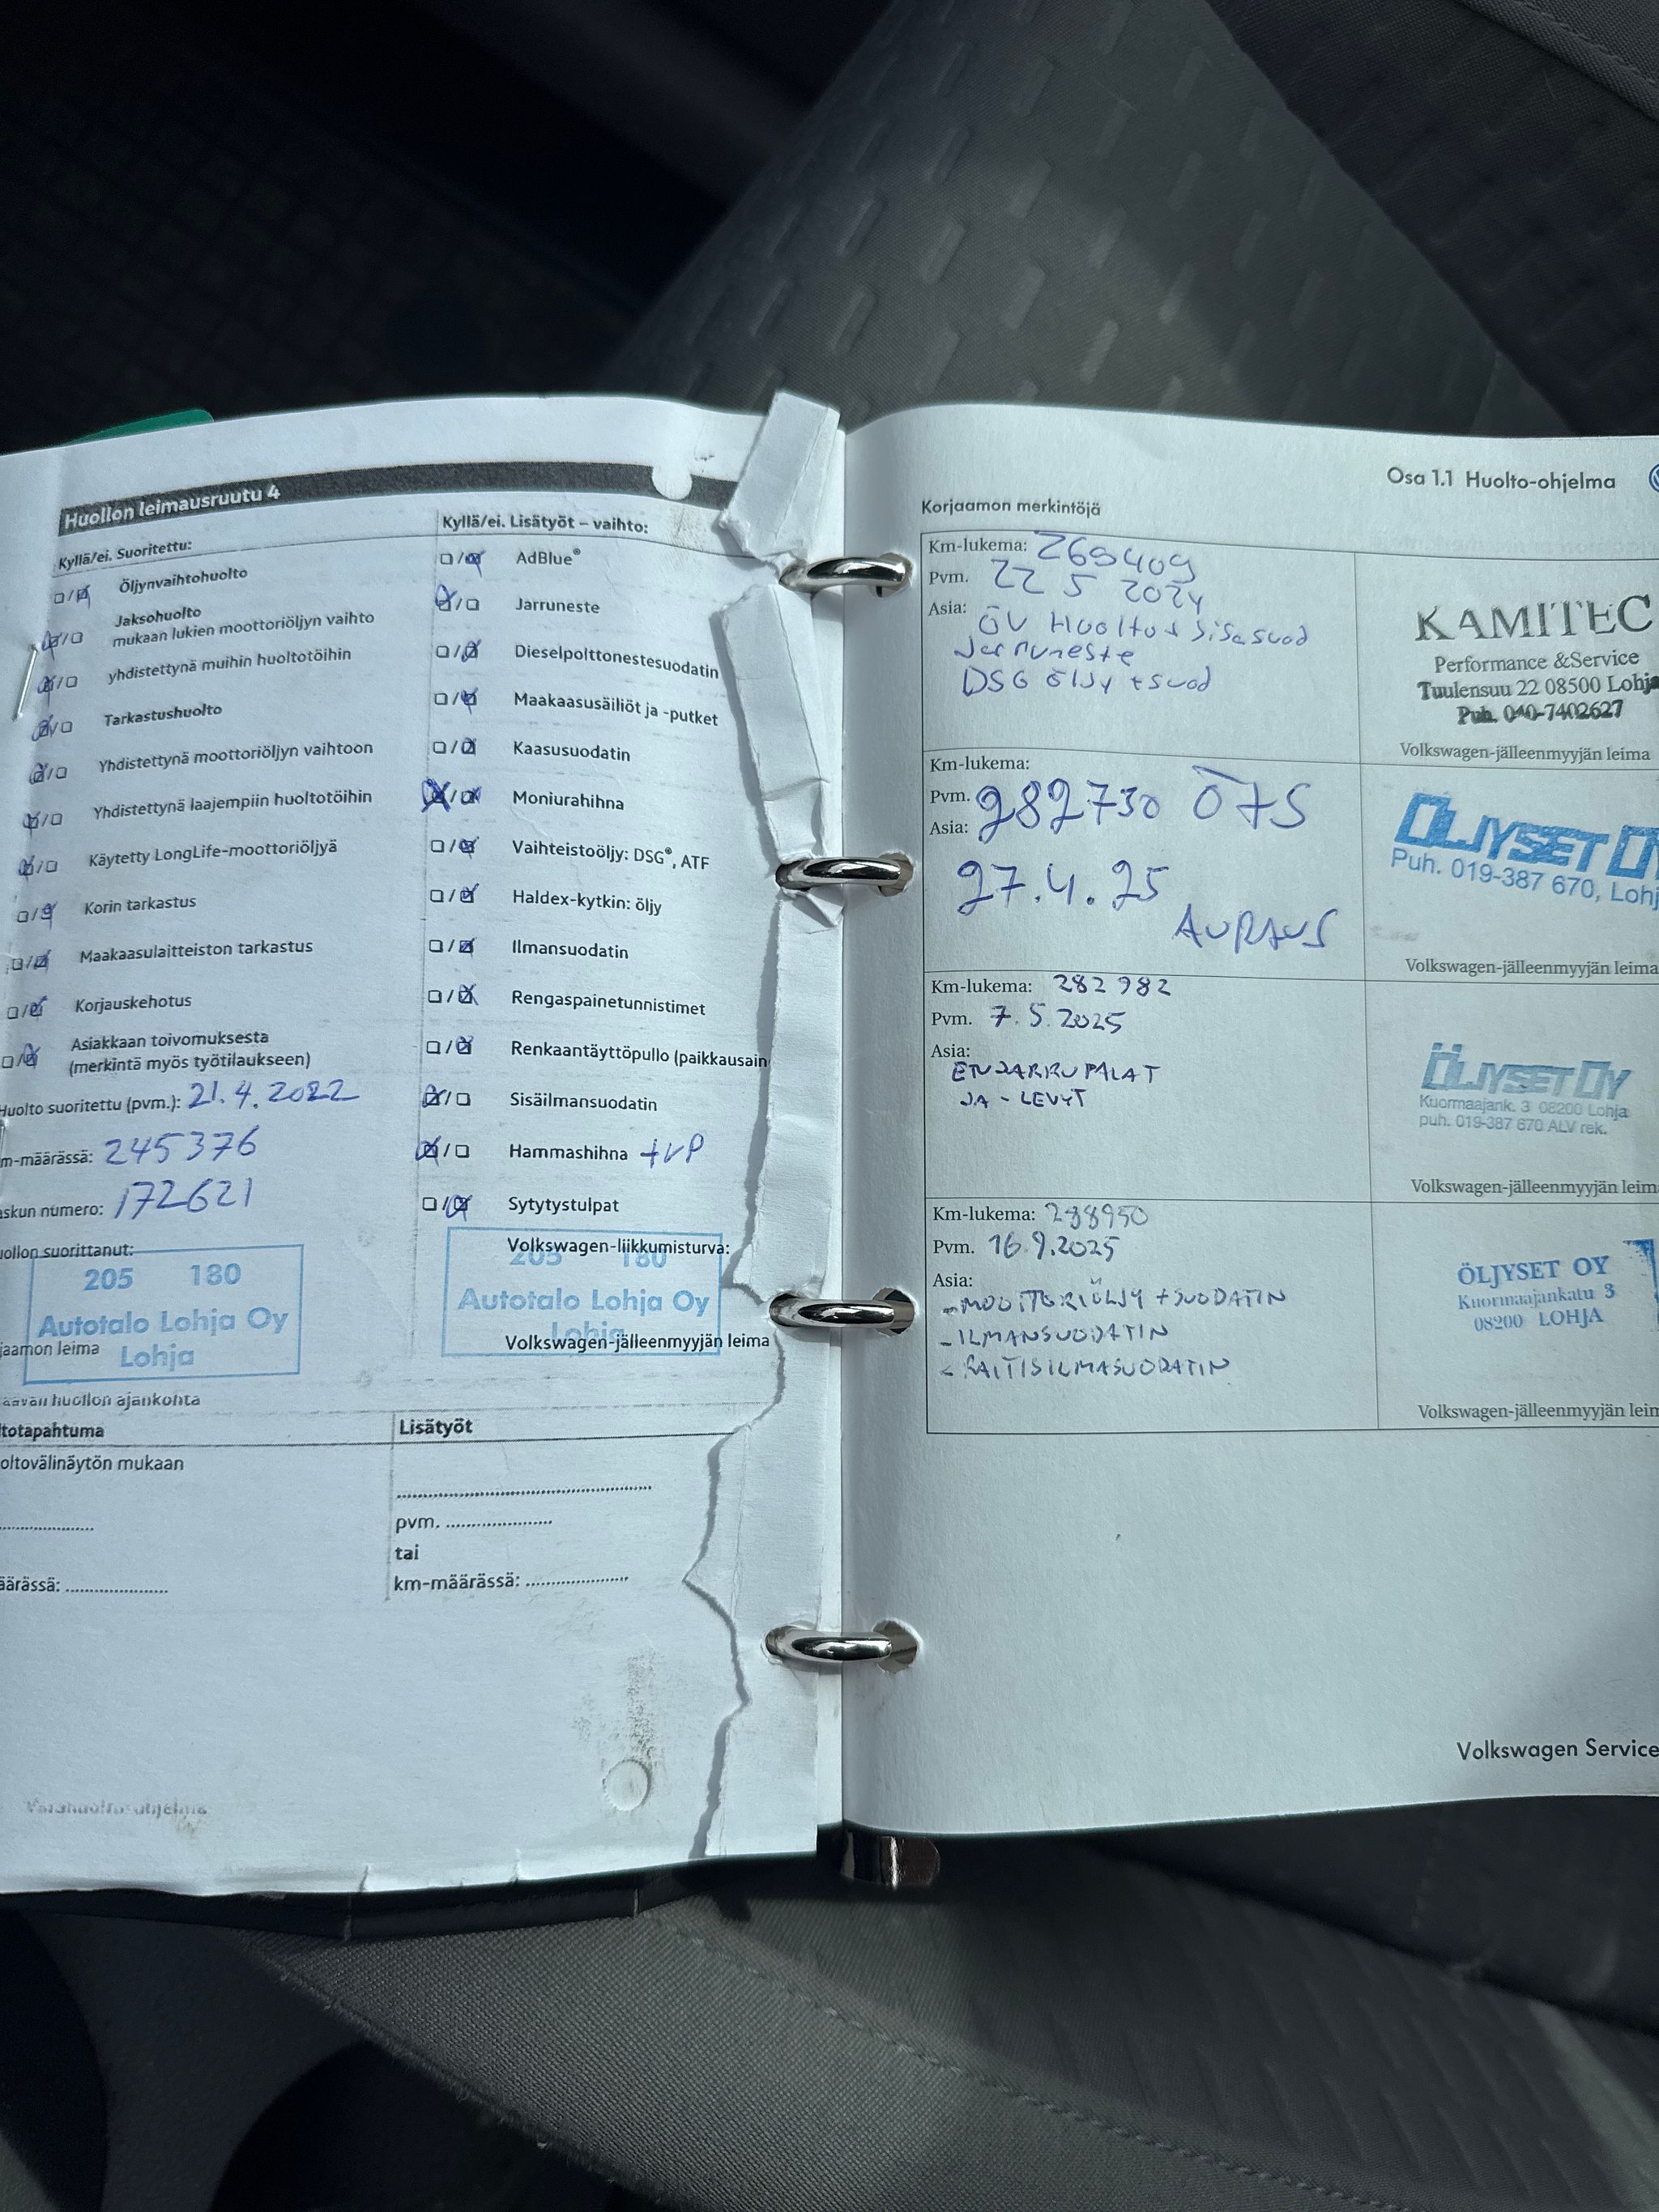 Huollon leimausruutu 4
Kyllä/ei. Suoritettu:
Öljynvaihtohuolto
Jaksohuolto
mukaan lukien moottoriöljyn vaihto
yhdistettynä muihin huoltotöihin
Tarkastushuolto
Yhdistettynä moottoriöljyn vaihtoon
Yhdistettynä laajempiin huoltotöihin
Käytetty LongLife-moottoriöljyä
Korin tarkastus
Maakaasulaitteiston tarkastus
Korjauskehotus
Asiakkaan toivomuksesta
(merkintä myös työtilaukseen)
Huolto suoritettu (pvm.): 21.4.2022
m-määrässä: 245376
askun numero: 172621
uollon suorittanut:
205 180
Autotalo Lohja Oy
Lohja
jaamon leima
aavan huollon ajankohta
totapahtuma
oltovälinäytön mukaan
äärässä:
Kyllä/ei. Lisätyöt – vaihto:
AdBlue®
Jarruneste
Dieselpolttonestesuodatin
Maakaasusäiliöt ja -putket
Kaasusuodatin
Moniurahihna
Vaihteistoöljy: DSG®, ATF
Haldex-kytkin: öljy
Ilmansuodatin
Rengaspainetunnistimet
Renkaantäyttöpullo (paikkausain
Sisäilmansuodatin
Hammashihna +VP
Sytytystulpat
Volkswagen-liikkumisturva:
205 180
Autotalo Lohja Oy
Lohja
Volkswagen-jälleenmyyjän leima
Lisätyöt
pvm.
tai
km-määrässä:
Varahuolto-ohjelma
Osa 1.1 Huolto-ohjelma
Korjaamon merkintöjä
Km-lukema: 269409
Pvm. 22 5 2024
Asia: ÖV Huolto + sisäsuod
Jarruneste
DSG öljy + suod
KAMITEC
Performance &Service
Tuulensuu 22 08500 Lohja
Puh. 040-7402627
Volkswagen-jälleenmyyjän leima
Km-lukema:
Pvm. 282730 ÖTS
Asia:
27.4.25
AURAUS
ÖLJYSET OY
Puh. 019-387 670, Lohj
Volkswagen-jälleenmyyjän leima
Km-lukema: 282982
Pvm. 7.5.2025
Asia:
ETUJARRUPALAT
JA -LEVYT
ÖLJYSET OY
Kuormaajank. 3 08200 Lohja
puh. 019-387 670 ALV rek.
Volkswagen-jälleenmyyjän leim
Km-lukema: 288950
Pvm. 16.9.2025
Asia:
- MOOTTORIÖLJY + SUODATIN
- ILMANSUODATIN
- RAITISILMASUODATIN
ÖLJYSET OY
Kuormaajankatu 3
08200 LOHJA
Volkswagen-jälleenmyyjän leim
Volkswagen Service